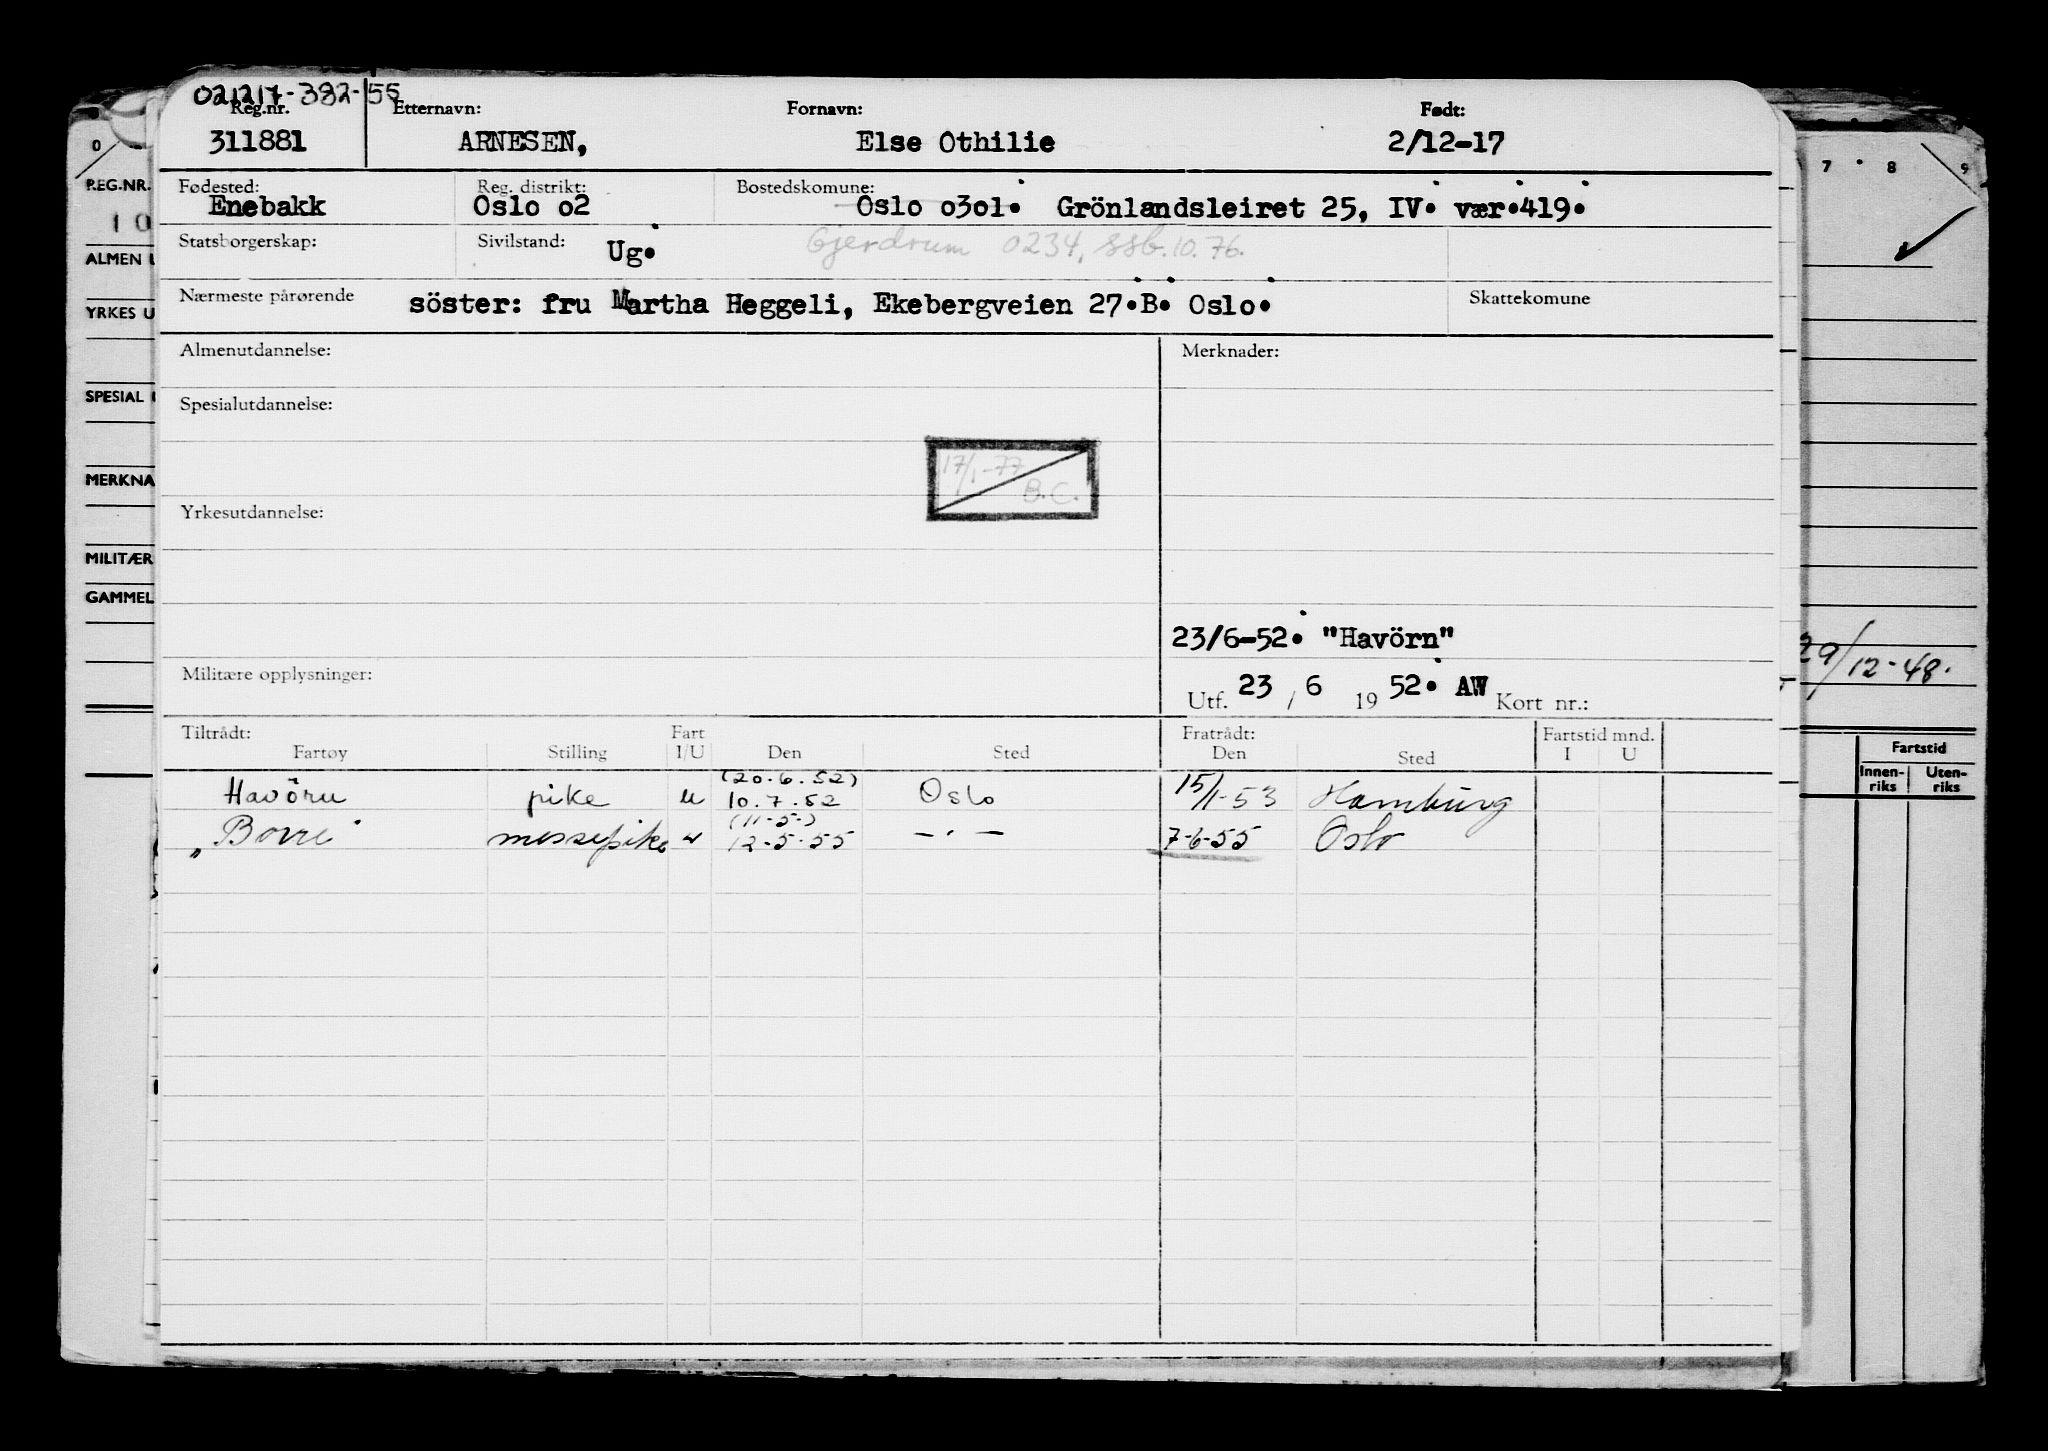 021217-382-55
Reg.nr. Etternavn: Fornavn: Født:
311881 ARNESEN, Else Othilie 2/12-17
Fødested: Reg. distrikt: Bostedskomune:
Enebakk Oslo o2 Oslo o3o1. Grönlandsleiret 25, IV. vær.419.
Statsborgerskap: Sivilstand: Ug. Gjerdrum 0234, ssb.10.76.
Nærmeste pårørende söster: fru Martha Heggeli, Ekebergveien 27.B. Oslo. Skattekomune
Almenutdannelse: Merknader:
Spesialutdannelse:
17/1-77
B.C.
Yrkesutdannelse:
23/6-52. "Havörn"
Militære opplysninger: Utf. 23 / 6 19 52. AW Kort nr.:
Tiltrådt: Fart Fratrådt: Fartstid mnd.
Fartøy Stilling I/U Den Sted Den Sted I U
(20.6.52)
Havörn pike u 10.7.52 Oslo 15/1-53 Hamburg
(11-5-)
"Borre" messepike u 12-5-55 -"- 7-6-55 Oslo
0
REG.NR.
10
ALMEN U
YRKES U
SPESIAL
MERKNA
MILITÆR
GAMMEL
7 8 9
29/12-48.
Fartstid
Innen-riks Uten-riks